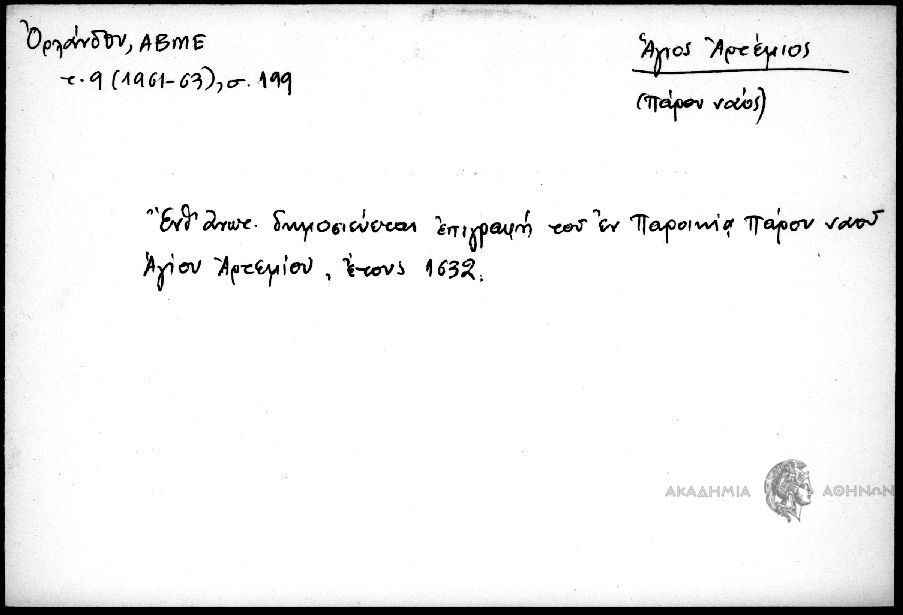 Ὀρλάνδου, ΑΒΜΕ
τ. 9 (1961-63), σ. 199
Ἅγιος Ἀρτέμιος
(Πάρου ναός)
Ἔνθ' ἀνωτ. δημοσιεύεται ἐπιγραφή τοῦ ἐν Παροικίᾳ Πάρου ναοῦ
Ἁγίου Ἀρτεμίου, ἔτους 1632.
ΑΚΑΔΗΜΙΑ ΑΘΗΝΩΝ